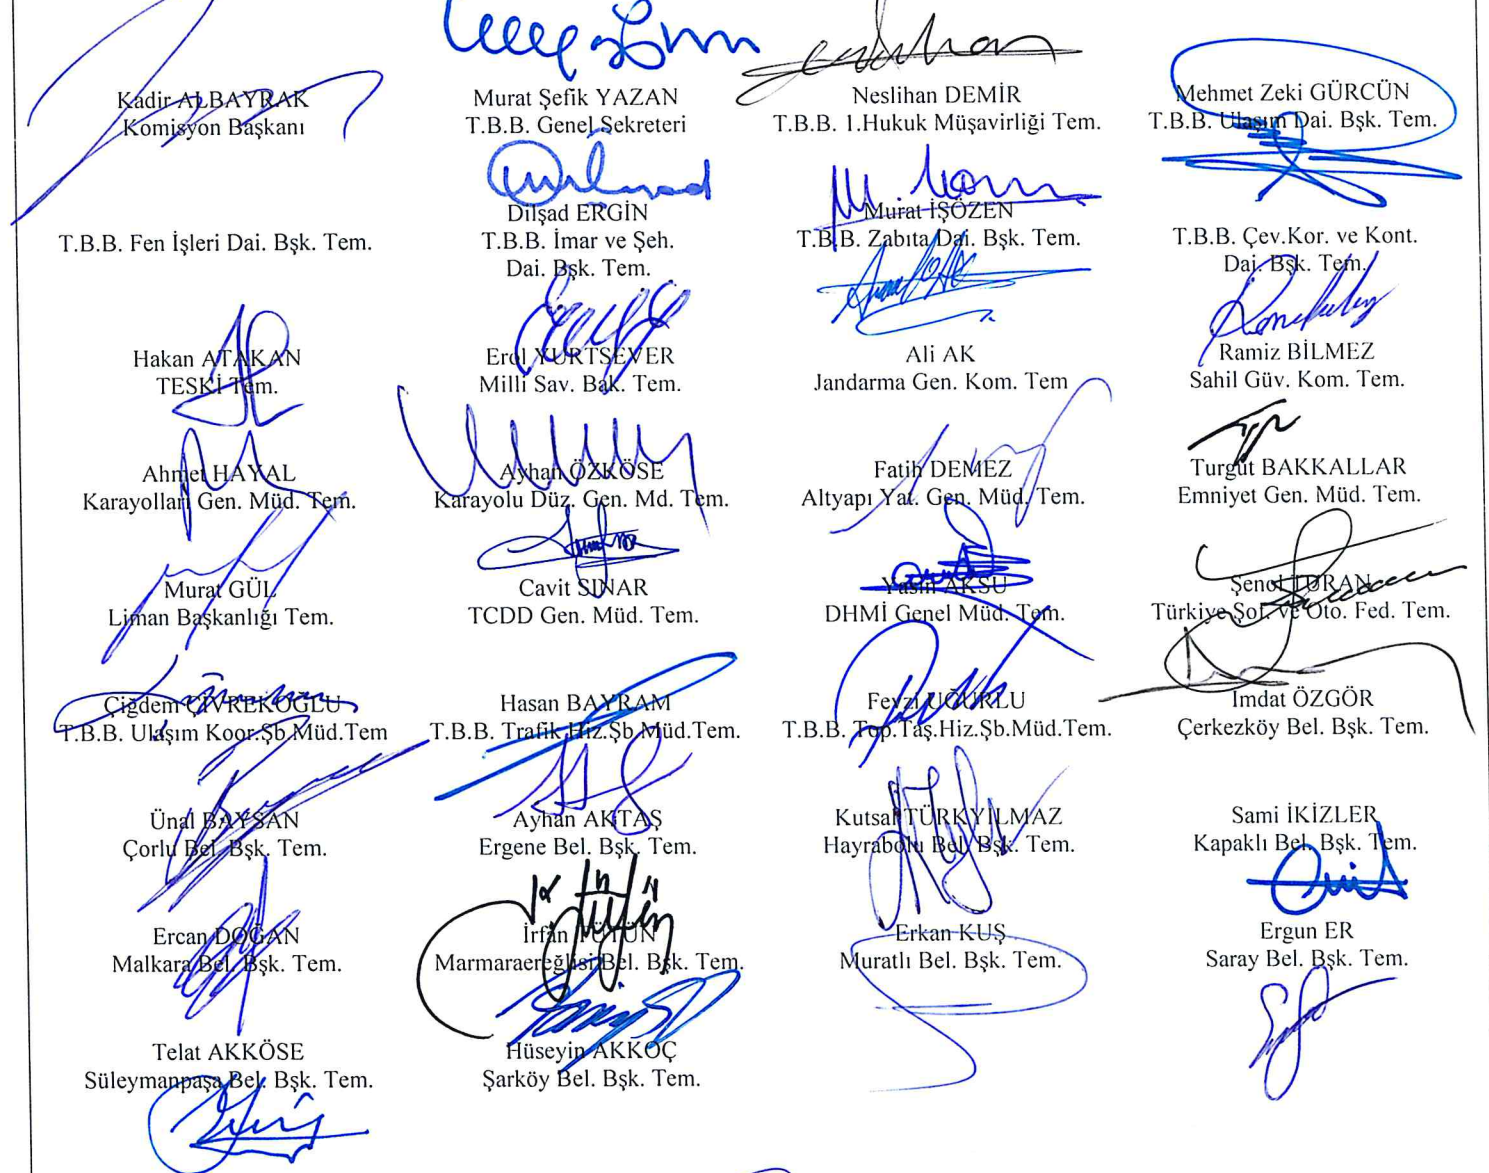 Kadir ALBAYRAK
Komisyon Başkanı
Murat Şefik YAZAN
T.B.B. Genel Sekreteri
Neslihan DEMİR
T.B.B. 1.Hukuk Müşavirliği Tem.
Mehmet Zeki GÜRCÜN
T.B.B. Ulaşım Dai. Bşk. Tem.
T.B.B. Fen İşleri Dai. Bşk. Tem.
Dilşad ERGİN
T.B.B. İmar ve Şeh.
Dai. Bşk. Tem.
Murat İŞÖZEN
T.B.B. Zabıta Dai. Bşk. Tem.
T.B.B. Çev.Kor. ve Kont.
Dai. Bşk. Tem.
Hakan ATAKAN
TESKİ Tem.
Erol YURTSEVER
Milli Sav. Bak. Tem.
Ali AK
Jandarma Gen. Kom. Tem
Ramiz BİLMEZ
Sahil Güv. Kom. Tem.
Ahmet HAYAL
Karayolları Gen. Müd. Tem.
Ayhan ÖZKÖSE
Karayolu Düz. Gen. Md. Tem.
Fatih DEMEZ
Altyapı Yat. Gen. Müd. Tem.
Turgut BAKKALLAR
Emniyet Gen. Müd. Tem.
Murat GÜL
Liman Başkanlığı Tem.
Cavit SINAR
TCDD Gen. Müd. Tem.
Yasin AKSU
DHMİ Genel Müd. Tem.
Şenol TURAN
Türkiye Şof. ve Oto. Fed. Tem.
Çiğdem ÇİVREKOĞLU
T.B.B. Ulaşım Koor.Şb.Müd.Tem
Hasan BAYRAM
T.B.B. Trafik Hiz.Şb.Müd.Tem.
Fevzi UĞURLU
T.B.B. Top.Taş.Hiz.Şb.Müd.Tem.
İmdat ÖZGÖR
Çerkezköy Bel. Bşk. Tem.
Ünal BAYSAN
Çorlu Bel. Bşk. Tem.
Ayhan AKTAŞ
Ergene Bel. Bşk. Tem.
Kutsal TÜRKYILMAZ
Hayrabolu Bel. Bşk. Tem.
Sami İKİZLER
Kapaklı Bel. Bşk. Tem.
Ercan DOĞAN
Malkara Bel. Bşk. Tem.
İrfan
Marmaraereğlisi Bel. Bşk. Tem.
Erkan KUŞ
Muratlı Bel. Bşk. Tem.
Ergun ER
Saray Bel. Bşk. Tem.
Telat AKKÖSE
Süleymanpaşa Bel. Bşk. Tem.
Hüseyin AKKOÇ
Şarköy Bel. Bşk. Tem.